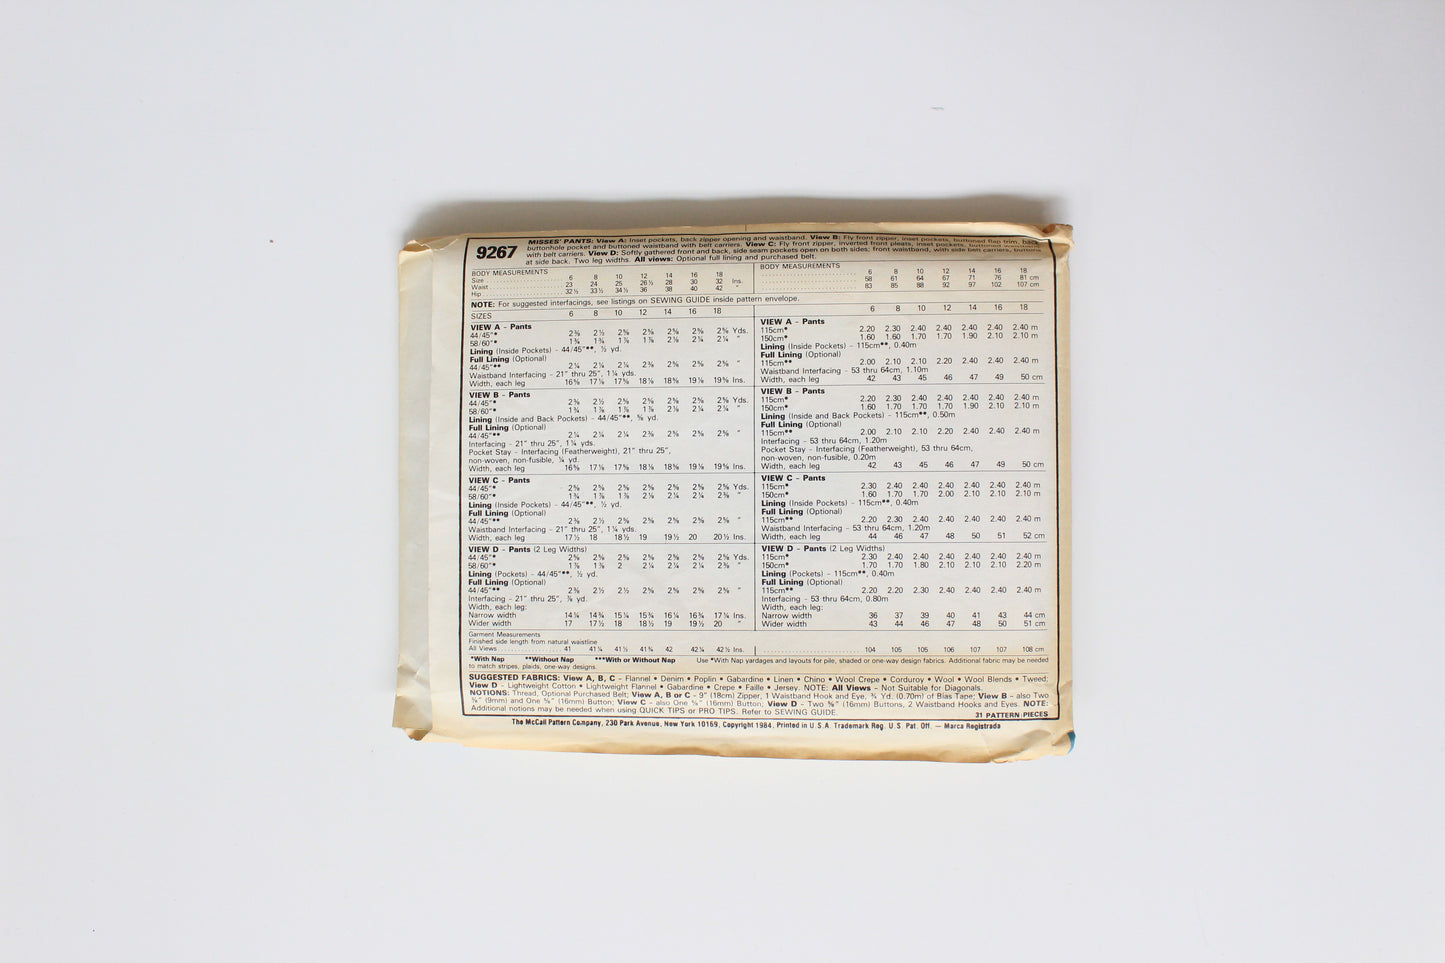 9267
MISSES' PANTS: View A: Inset pockets, back zipper opening and waistband. View B: Fly front zipper, inset pockets, buttoned flap trim, back
buttonhole pocket and buttoned waistband with belt carriers. View C: Fly front zipper, inverted front pleats, inset pockets, buttoned waistband
with belt carriers. View D: Softly gathered front and back, side seam pockets open on both sides; front waistband, with side belt carriers, buttons
at side back. Two leg widths. All views: Optional full lining and purchased belt.
BODY MEASUREMENTS
Size 6 8 10 12 14 16 18
Waist 23 24 25 26½ 28 30 32 Ins.
Hip 32½ 33½ 34½ 36 38 40 42 "
BODY MEASUREMENTS
6 8 10 12 14 16 18
58 61 64 67 71 76 81 cm
83 85 88 92 97 102 107 cm
NOTE: For suggested interfacings, see listings on SEWING GUIDE inside pattern envelope.
SIZES 6 8 10 12 14 16 18
VIEW A - Pants
44/45"* 2⅜ 2½ 2⅝ 2⅝ 2⅝ 2⅝ 2⅝ Yds.
58/60"* 1¾ 1¾ 1⅞ 1⅞ 2⅛ 2¼ 2¼ "
Lining (Inside Pockets) - 44/45"**, ½ yd.
Full Lining (Optional)
44/45"** 2¼ 2¼ 2¼ 2⅜ 2⅝ 2⅝ 2⅝ "
Waistband Interfacing - 21" thru 25", 1¼ yds.
Width, each leg 16⅝ 17⅛ 17⅝ 18⅛ 18⅝ 19⅛ 19⅝ Ins.
VIEW B - Pants
44/45"* 2⅜ 2½ 2⅝ 2⅝ 2⅝ 2⅝ 2⅝ Yds.
58/60"* 1¾ 1⅞ 1⅞ 1⅞ 2⅛ 2¼ 2¼ "
Lining (Inside and Back Pockets) - 44/45"**, ⅝ yd.
Full Lining (Optional)
44/45"** 2¼ 2¼ 2¼ 2⅜ 2⅝ 2⅝ 2⅝ "
Interfacing - 21" thru 25", 1¼ yds.
Pocket Stay - Interfacing (Featherweight), 21" thru 25",
non-woven, non-fusible, ¼ yd.
Width, each leg 16⅝ 17⅛ 17⅝ 18⅛ 18⅝ 19⅛ 19⅝ Ins.
VIEW C - Pants
44/45"* 2⅝ 2⅝ 2⅝ 2⅝ 2⅝ 2⅝ Yds.
58/60"* 1¾ 1⅞ 1⅞ 2⅛ 2¼ 2¼ 2⅜ "
Lining (Inside Pockets) - 44/45"**, ½ yd.
Full Lining (Optional)
44/45"** 2⅜ 2½ 2⅝ 2⅝ 2⅝ 2⅝ 2⅝ "
Waistband Interfacing - 21" thru 25", 1¼ yds.
Width, each leg 17½ 18 18½ 19 19½ 20 20½ Ins.
VIEW D - Pants (2 Leg Widths)
44/45"* 2⅝ 2⅝ 2⅝ 2⅝ 2⅝ 2⅝ 2⅝ Yds.
58/60"* 1⅞ 1⅞ 2 2¼ 2¼ 2¼ 2⅜ "
Lining (Pockets) - 44/45"**, ½ yd.
Full Lining (Optional)
44/45"** 2⅜ 2½ 2½ 2⅝ 2⅝ 2⅝ 2⅝ "
Interfacing - 21" thru 25", ⅞ yd.
Width, each leg:
Narrow width 14¼ 14¾ 15¼ 15¾ 16¼ 16¾ 17¼ Ins.
Wider width 17 17½ 18 18½ 19 19½ 20 "
Garment Measurements
Finished side length from natural waistline
All Views 41 41¼ 41½ 41¾ 42 42¼ 42½ Ins.
6 8 10 12 14 16 18
VIEW A - Pants
115cm* 2.20 2.30 2.40 2.40 2.40 2.40 2.40 m
150cm* 1.60 1.60 1.70 1.70 1.90 2.10 2.10 m
Lining (Inside Pockets) - 115cm**, 0.40m
Full Lining (Optional)
115cm** 2.00 2.10 2.10 2.20 2.40 2.40 2.40 m
Waistband Interfacing - 53 thru 64cm, 1.10m
Width, each leg 42 43 45 46 47 49 50 cm
VIEW B - Pants
115cm* 2.20 2.30 2.40 2.40 2.40 2.40 2.40 m
150cm* 1.60 1.70 1.70 1.70 1.90 2.10 2.10 m
Lining (Inside and Back Pockets) - 115cm**, 0.50m
Full Lining (Optional)
115cm** 2.00 2.10 2.10 2.20 2.40 2.40 2.40 m
Interfacing - 53 thru 64cm, 1.20m
Pocket Stay - Interfacing (Featherweight), 53 thru 64cm,
non-woven, non-fusible, 0.20m
Width, each leg 42 43 45 46 47 49 50 cm
VIEW C - Pants
115cm* 2.30 2.40 2.40 2.40 2.40 2.40 2.40 m
150cm* 1.60 1.70 1.70 2.00 2.10 2.10 2.10 m
Lining (Inside Pockets) - 115cm**, 0.40m
Full Lining (Optional)
115cm** 2.20 2.30 2.40 2.40 2.40 2.40 2.40 m
Waistband Interfacing - 53 thru 64cm, 1.20m
Width, each leg 44 46 47 48 50 51 52 cm
VIEW D - Pants (2 Leg Widths)
115cm* 2.30 2.40 2.40 2.40 2.40 2.40 2.40 m
150cm* 1.70 1.70 1.80 2.10 2.10 2.10 2.20 m
Lining (Pockets) - 115cm**, 0.40m
Full Lining (Optional)
115cm** 2.20 2.20 2.30 2.40 2.40 2.40 2.40 m
Interfacing - 53 thru 64cm, 0.80m
Width, each leg:
Narrow width 36 37 39 40 41 43 44 cm
Wider width 43 44 46 47 48 50 51 cm
104 105 105 106 107 107 108 cm
*With Nap **Without Nap ***With or Without Nap Use *With Nap yardages and layouts for pile, shaded or one-way design fabrics. Additional fabric may be needed
to match stripes, plaids, one-way designs.
SUGGESTED FABRICS: View A, B, C - Flannel • Denim • Poplin • Gabardine • Linen • Chino • Wool Crepe • Corduroy • Wool • Wool Blends • Tweed;
View D - Lightweight Cotton • Lightweight Flannel • Gabardine • Crepe • Faille • Jersey. NOTE: All Views - Not Suitable for Diagonals.
NOTIONS: Thread, Optional Purchased Belt; View A, B or C - 9" (18cm) Zipper, 1 Waistband Hook and Eye, ¾ Yd. (0.70m) of Bias Tape; View B - also Two
⅜" (9mm) and One ⅝" (16mm) Button; View C - also One ⅝" (16mm) Button; View D - Two ⅝" (16mm) Buttons, 2 Waistband Hooks and Eyes. NOTE:
Additional notions may be needed when using QUICK TIPS or PRO TIPS. Refer to SEWING GUIDE.
31 PATTERN PIECES
The McCall Pattern Company, 230 Park Avenue, New York 10169, Copyright 1984, Printed in U.S.A. Trademark Reg. U.S. Pat. Off. — Marca Registrada